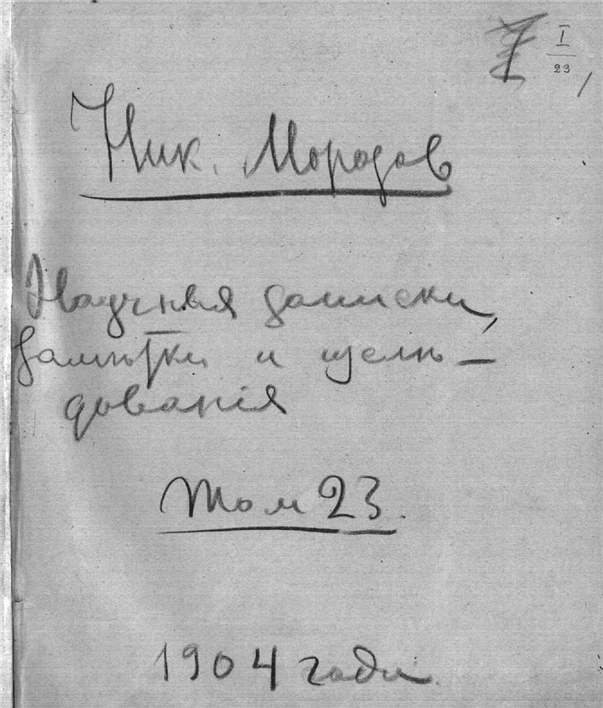 I
23
Ник. Морозов
Научныя записки,
замѣтки и изслѣ-
дованія
Том 23.
1904 года.